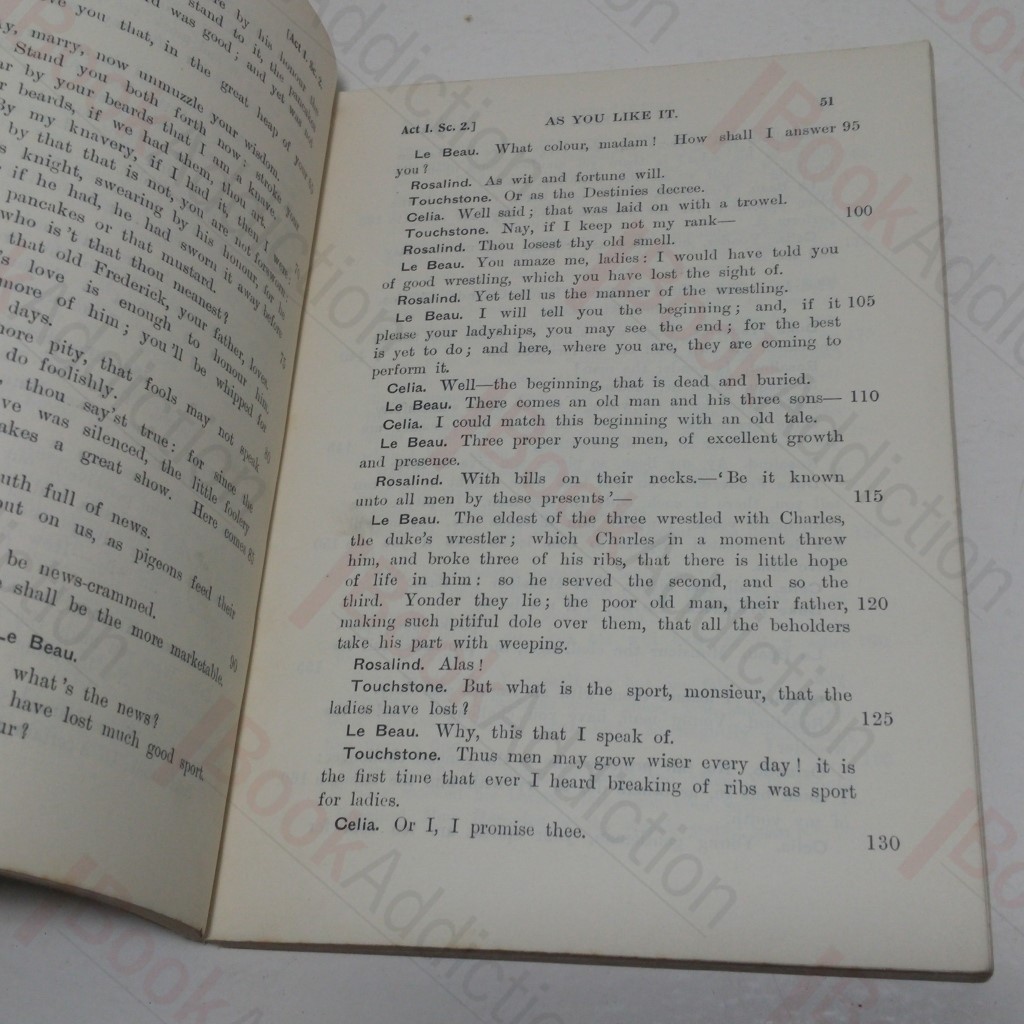 by his honour the
stand to it, the pancakes
was good; and yet was
[Act I. Sc. 2.
you that, in the great heap of your
marry, now unmuzzle your wisdom.
Stand you both forth now: stroke your
by your beards that I am a knave.
beards, if we had them, thou art.
By my knavery, if I had it, then I were:
by that that is not, you are not forsworn:
knight, swearing by his honour, for he
if he had, he had sworn it away before
pancakes or that mustard.
who is 't that thou meanest?
that old Frederick, your father, loves.
love is enough to honour him.
more of him; you'll be whipped for
days.
more pity, that fools may not speak
do foolishly.
thou say'st true: for since the
was silenced, the little foolery
makes a great show. Here comes 85
full of news.
on us, as pigeons feed their
be news-crammed.
shall be the more marketable. 90
Le Beau.
what's the news?
have lost much good sport.
51
Act I. Sc. 2.] AS YOU LIKE IT.
Le Beau. What colour, madam! How shall I answer 95
you?
Rosalind. As wit and fortune will.
Touchstone. Or as the Destinies decree.
Celia. Well said; that was laid on with a trowel.
Touchstone. Nay, if I keep not my rank— 100
Rosalind. Thou losest thy old smell.
Le Beau. You amaze me, ladies: I would have told you
of good wrestling, which you have lost the sight of.
Rosalind. Yet tell us the manner of the wrestling.
Le Beau. I will tell you the beginning; and, if it 105
please your ladyships, you may see the end; for the best
is yet to do; and here, where you are, they are coming to
perform it.
Celia. Well—the beginning, that is dead and buried.
Le Beau. There comes an old man and his three sons— 110
Celia. I could match this beginning with an old tale.
Le Beau. Three proper young men, of excellent growth
and presence.
Rosalind. With bills on their necks.—'Be it known
unto all men by these presents'— 115
Le Beau. The eldest of the three wrestled with Charles,
the duke's wrestler; which Charles in a moment threw
him, and broke three of his ribs, that there is little hope
of life in him: so he served the second, and so the
third. Yonder they lie; the poor old man, their father, 120
making such pitiful dole over them, that all the beholders
take his part with weeping.
Rosalind. Alas!
Touchstone. But what is the sport, monsieur, that the
ladies have lost? 125
Le Beau. Why, this that I speak of.
Touchstone. Thus men may grow wiser every day! it is
the first time that ever I heard breaking of ribs was sport
for ladies.
Celia. Or I, I promise thee. 130
BookAddiction